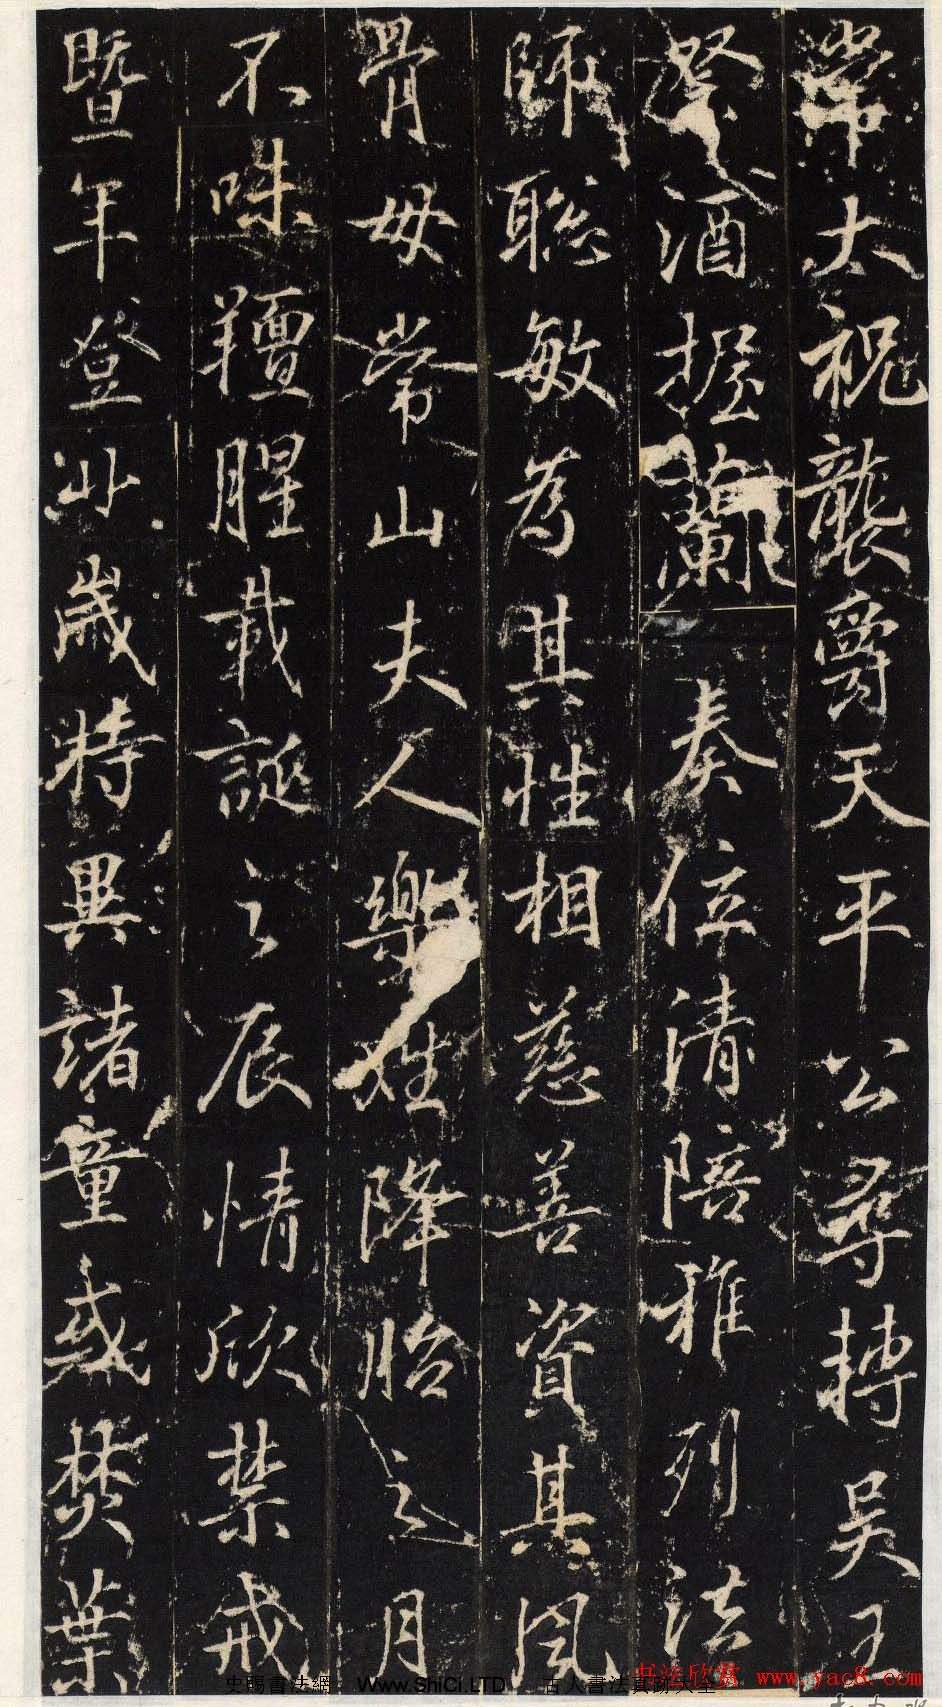 常太祝襲爵天平公尋轉吳王
祭酒握蘭奏位清陪雅列法
師聡敏為其性相慈善資其風
骨母常山夫人樂姓降胎之月
不味羶腥載誕之辰情欣禁戒
暨年登丱歳特異諸童或焚葉
史賜書法網 Www.ShiCi.LTD 古人書法真跡大全
书法欣赏 www.yac8.com